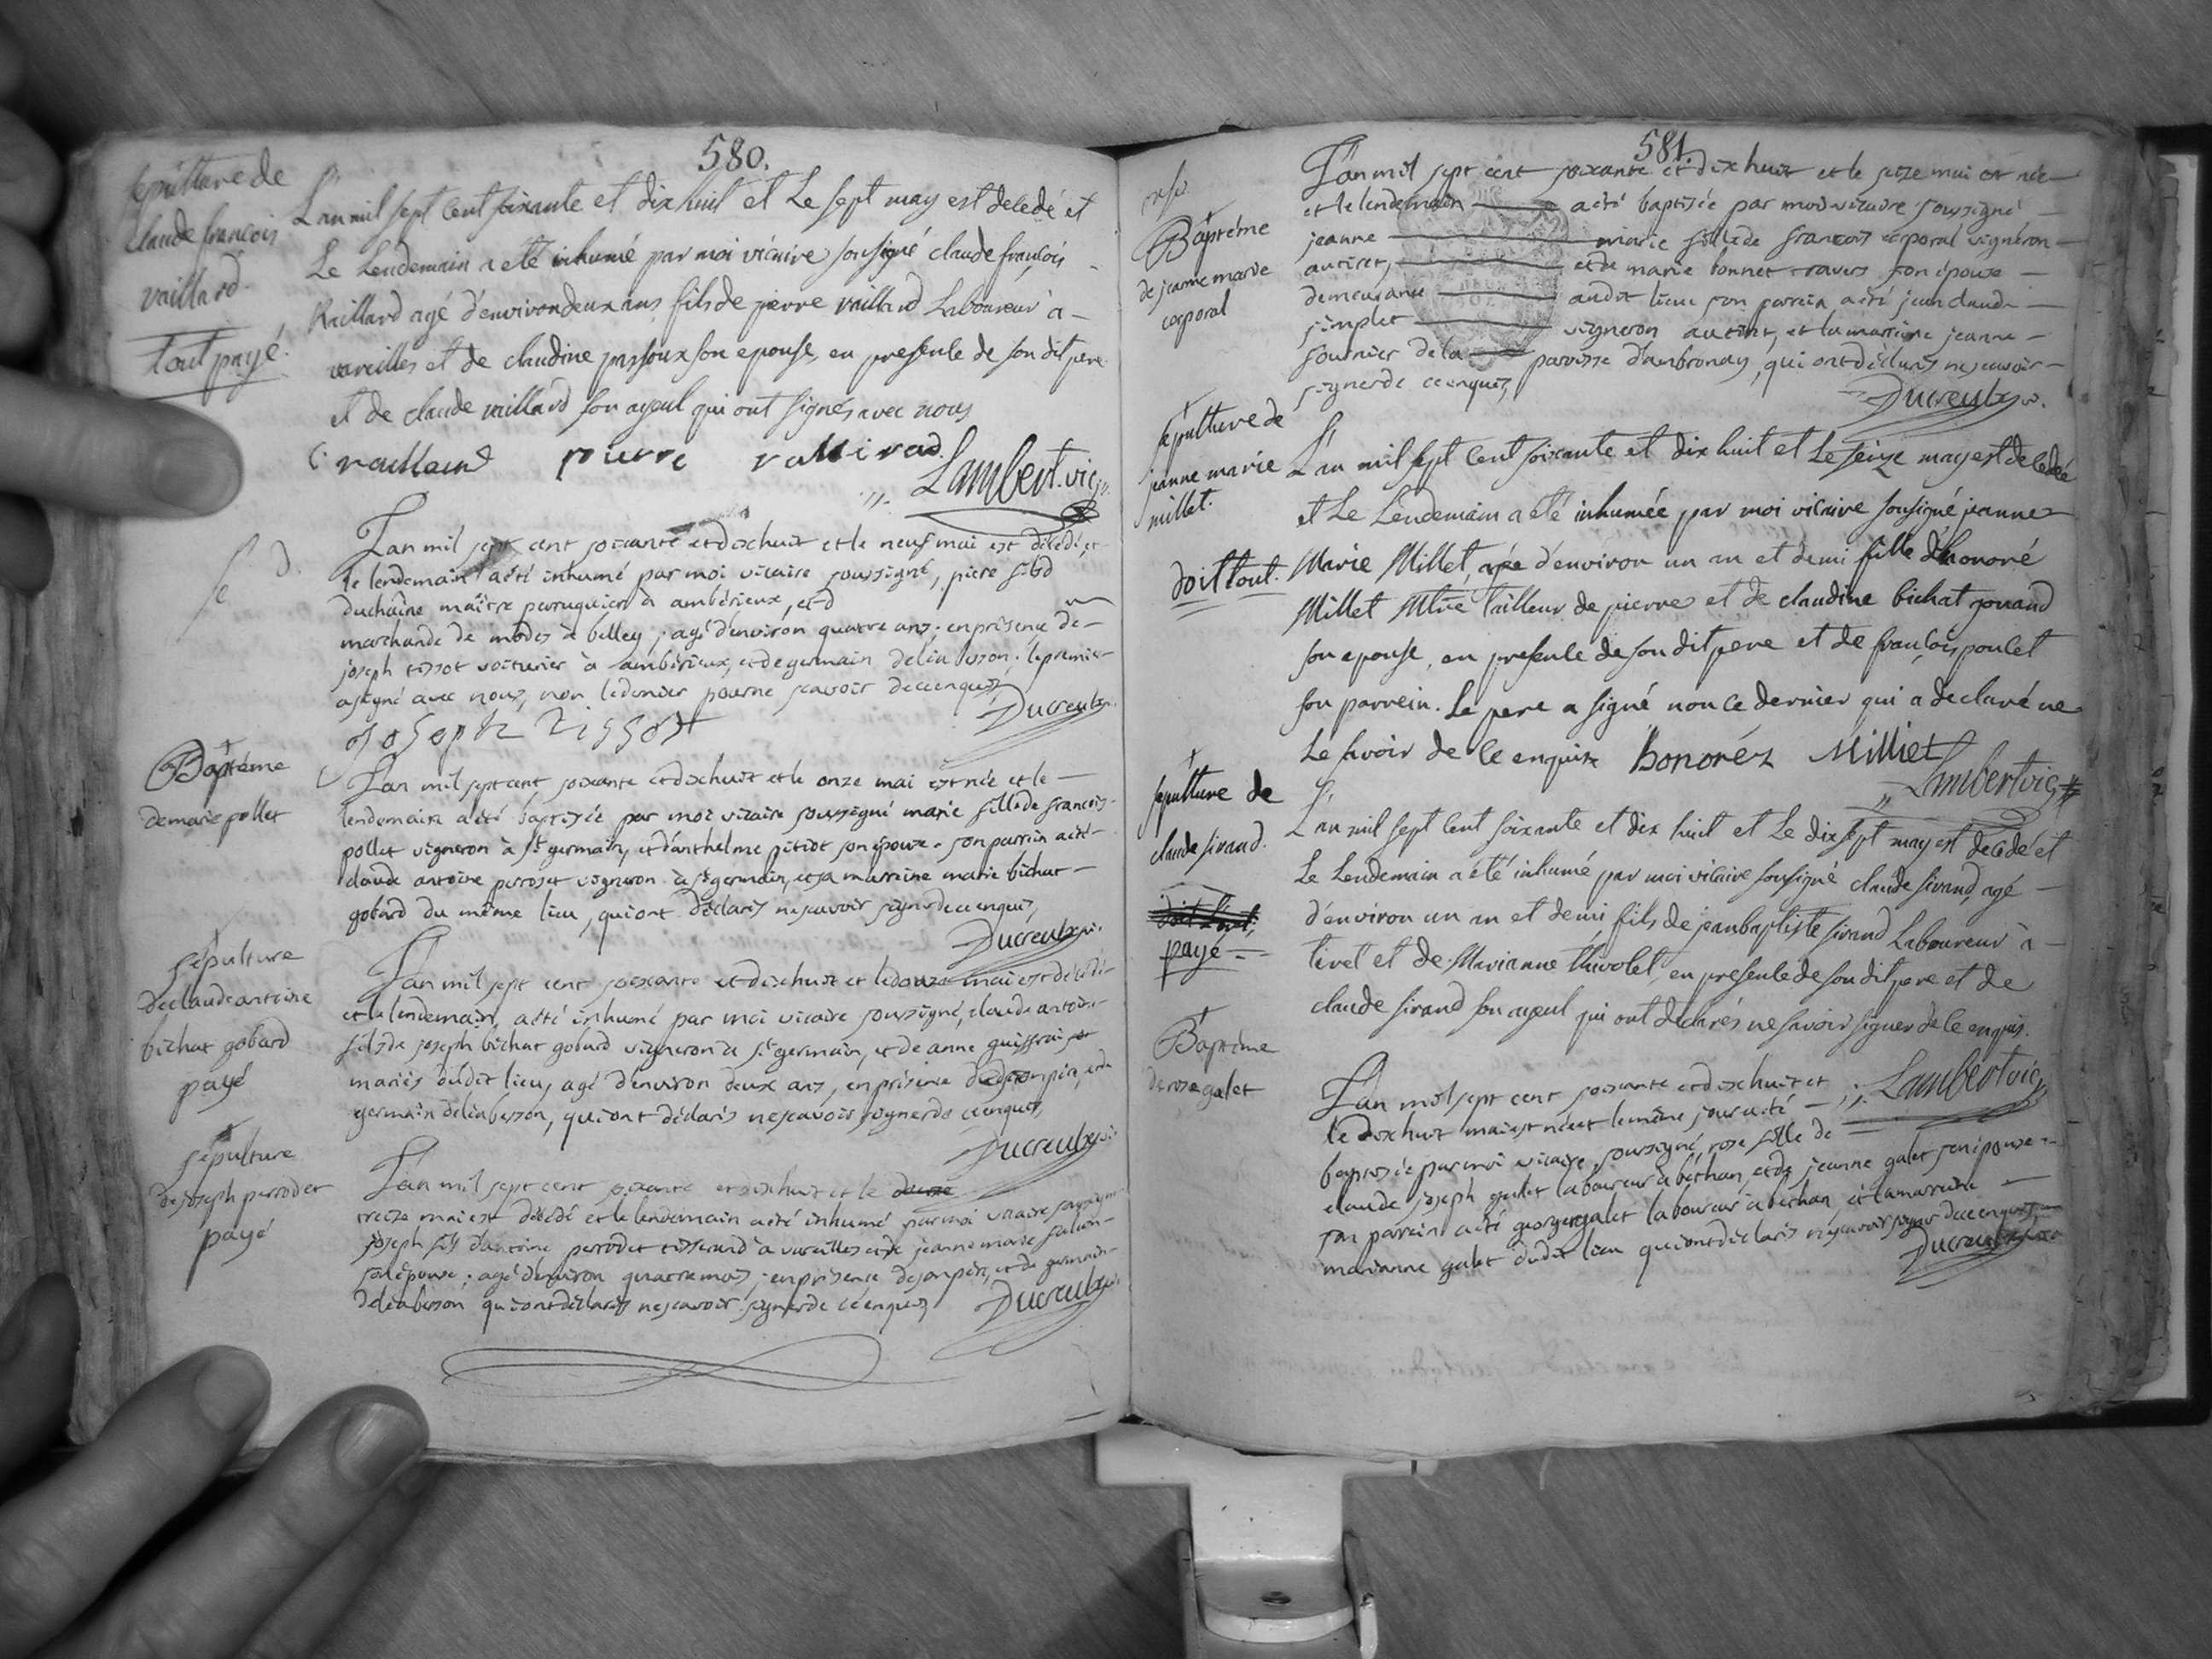 580.
sepulture de
claude françois
vaillard.
tout payé.
L'an mil sept cent soixante et dix huit et Le sept may est decedé et
Le Lendemain a eté inhumé par moi vicaire sousigné claude françois
Vaillard agé d'environ deux ans fils de pierre vaillard Laboureur à
vareilles et de claudine passoux son epouse, en presence de son dit pere
et de claude vaillard son ayeul qui ont signés avec nous
C vaillard pierre
Lambert. vic.
L'an mil sept cent soixante et dixhuit et le neuf mai est décédé, et
le lendemain a été inhumé par moi vicaire soussigné, piere
duchaîne maître perruquier à ambérieux, et d
marchande de modes à belley ; agé d'environ quatre ans ; en présence de
joseph tissot voiturier à ambérieux, et de germain . le premier
a signé avec nous, non le dernier pour ne scavoir de ce enquis,
Ducreux v.
Joseph Tissot
Baptéme
de marie pollet
L'an mil sept cent soixante et dixhuit et le onze mai est née et le
lendemain a été baptisée par moi vicaire soussigné marie fille de francois
pollet vigneron à st germain, et d'anthelme pitiot son épouse. son parrin a été
claude antoine perroset vigneron à st germain, et sa marreine marie bichat
gobard du même lieu, qui ont déclarés ne scavoir signer de ce enquis,
Ducreux v.
sépulture
de claude antoine
bichat gobard
payé
L'an mil sept cent soixante et dixhuit et le douze mai est décédé
et le lendemain, a été inhumé par moi vicaire soussigné, claude antoine
fils de joseph bichat gobard vigneron à st germain, et de anne
mariés dudit lieu, agé d'environ deux ans, en présence de son pére, et de
germain, qui ont déclarés ne scavoir signer de ce enquis,
Ducreux v.
sépulture
de joseph perrodet
payé
L'an mil sept cent soixante et dixhuit et le
treize mai est décédé et le lendemain a été inhumé par moi vicaire soussigné
joseph fils d'antoine perrodet tisserand à vareilles et de jeanne marie
son épouse ; agé d'environ quatre mois ; en présence de son pére, et de germain
qui ont déclarés ne scavoir signer de ce enquis,
Ducreux v.
581.
Baptéme
de jeanne marie
corporal
L'an mil sept cent soixante et dix huit et le seize mai est née
et le lendemain a été baptisée par moi vicaire soussigné
jeanne marie fille de francois corporal vigneron
au tiret, et de marie bonnet travers son épouse
demeurans audit lieu son parrein a été jean claude
simplet vigneron au tiret, et la marreine jeanne
fournier de la paroisse d'ambronay, qui ont déclarés ne scavoir
signer de ce enquis,
Ducreux v.
sepulture de
jeanne marie
millet.
doit tout.
L'an mil sept cent soixante et dix huit et Le seize may est decedée
et Le Lendemain a eté inhumée par moi vicaire sousigné jeanne
Marie Millet, agée d'environ un an et demi fille d'honoré
Millet Mtre tailleur de pierre et de claudine bichat jouand
son epouse, en presence de son dit pere et de françois poulet
son parrein. Le pere a signé non ce dernier qui a declaré ne
Le savoir de ce enquis honoréz Milliet
Lambert vic
sepulture de
claude sirand.
payé
L'an mil sept cent soixante et dix huit et Le dix sept may est decedé et
Le Lendemain a eté inhumé par moi vicaire sousigné claude sirand, agé
d'environ un an et demi, fils de jean baptiste sirand Laboureur à
tiret et de Marianne thivolet, en presence de son dit pere et de
claude sirand son ayeul qui ont declarés ne savoir signer de ce enquis.
Lambert vic
Baptéme
de rose galet
L'an mil sept cent soixante et dixhuit et
le dixhuit mai est née et le même jour a été
baptisée par moi vicaire soussigné, rose fille de
claude joseph galet laboureur à bethan, et de jeanne galet son épouse
son parrein a été george galet laboureur à bethan, et la marreine
marianne galet dudit lieu qui ont déclarés ne scavoir signer de ce enquis,
Ducreux